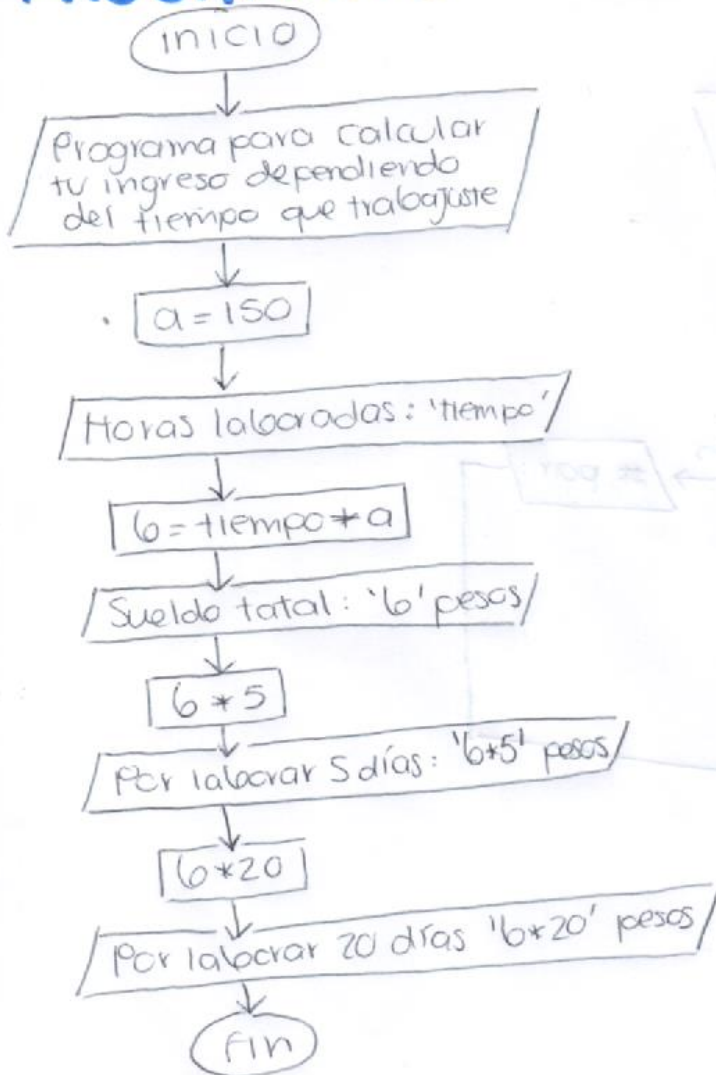 inicio
Programa para calcular
tu ingreso dependiendo
del tiempo que trabajaste
a = 150
Horas laboradas: 'tiempo'
b = tiempo * a
Sueldo tatal: 'b' pesos
b * 5
Por laborar 5 días: 'b*5' pesos
b * 20
Por laborar 20 días 'b*20' pesos
fin